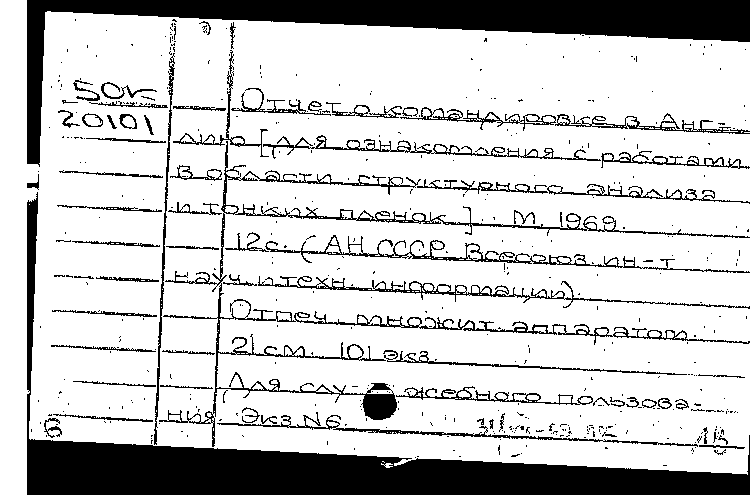 50к
20101
Отчет о командировке в Анг-
лию [для ознакомления с работами
в области структурного анализа
и тонких пленок]. М., 1969.
12с. (АН СССР. Всесоюз. ин-т
науч. и техн. информации).
Отпеч. множит. аппаратом.
21 см. 101 экз.
Для слу- жебного пользова-
ния. Экз. N6.
6